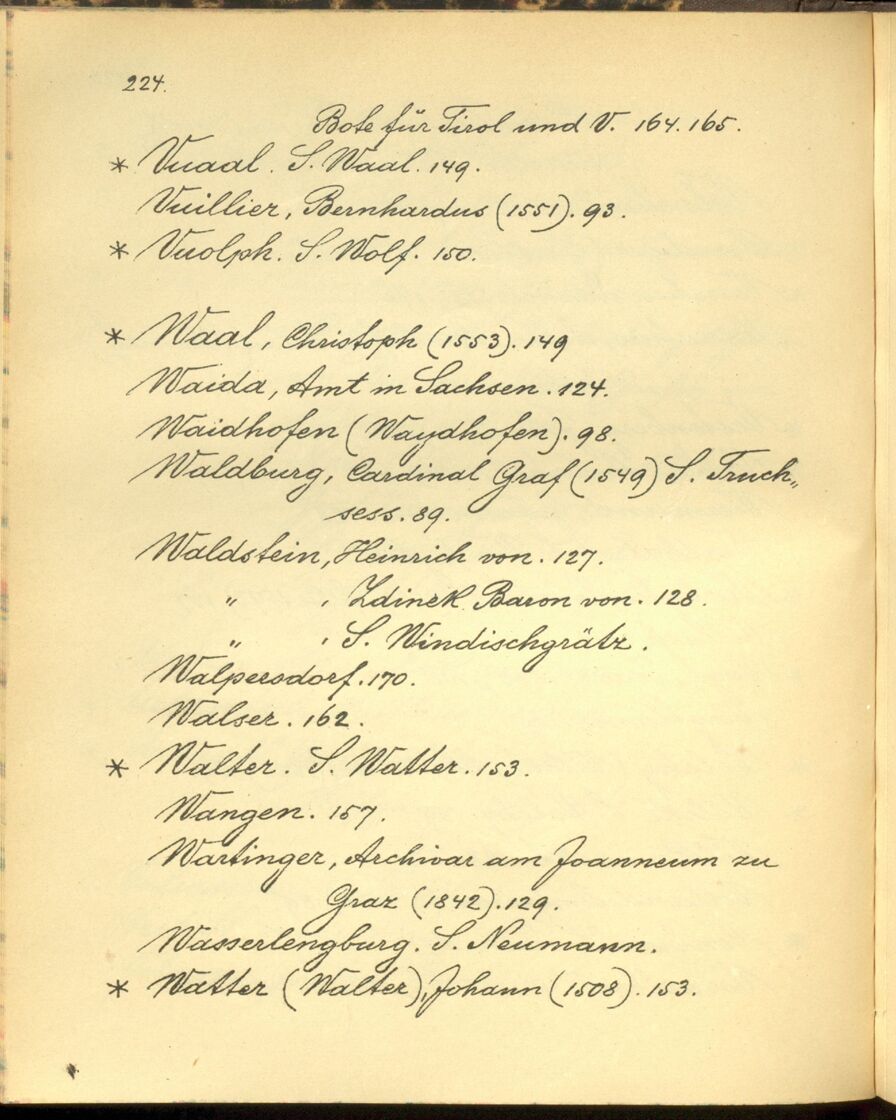 224.
Bote für Tirol und V. 164. 165.
* Vuaal. S. Waal. 149.
Vuillier, Bernhardus (1551). 93.
* Vuolph. S. Wolf. 150.
* Waal, Christoph (1553). 149
Waida, Amt in Sachsen. 124.
Waidhofen (Waydhofen). 98.
Waldburg, Cardinal Graf (1549) S. Truch„
sess. 89.
Waldstein, Heinrich von. 127.
„ , Zdinek Baron von. 128.
„ , S. Windischgrätz.
Walpersdorf. 170.
Walser. 162.
* Walter. S. Watter. 153.
Wangen. 157.
Wartinger, Archivar am Joanneum zu
Graz (1842). 129.
Wasserlengburg. S. Neumann.
* Watter (Walter), Johann (1508). 153.